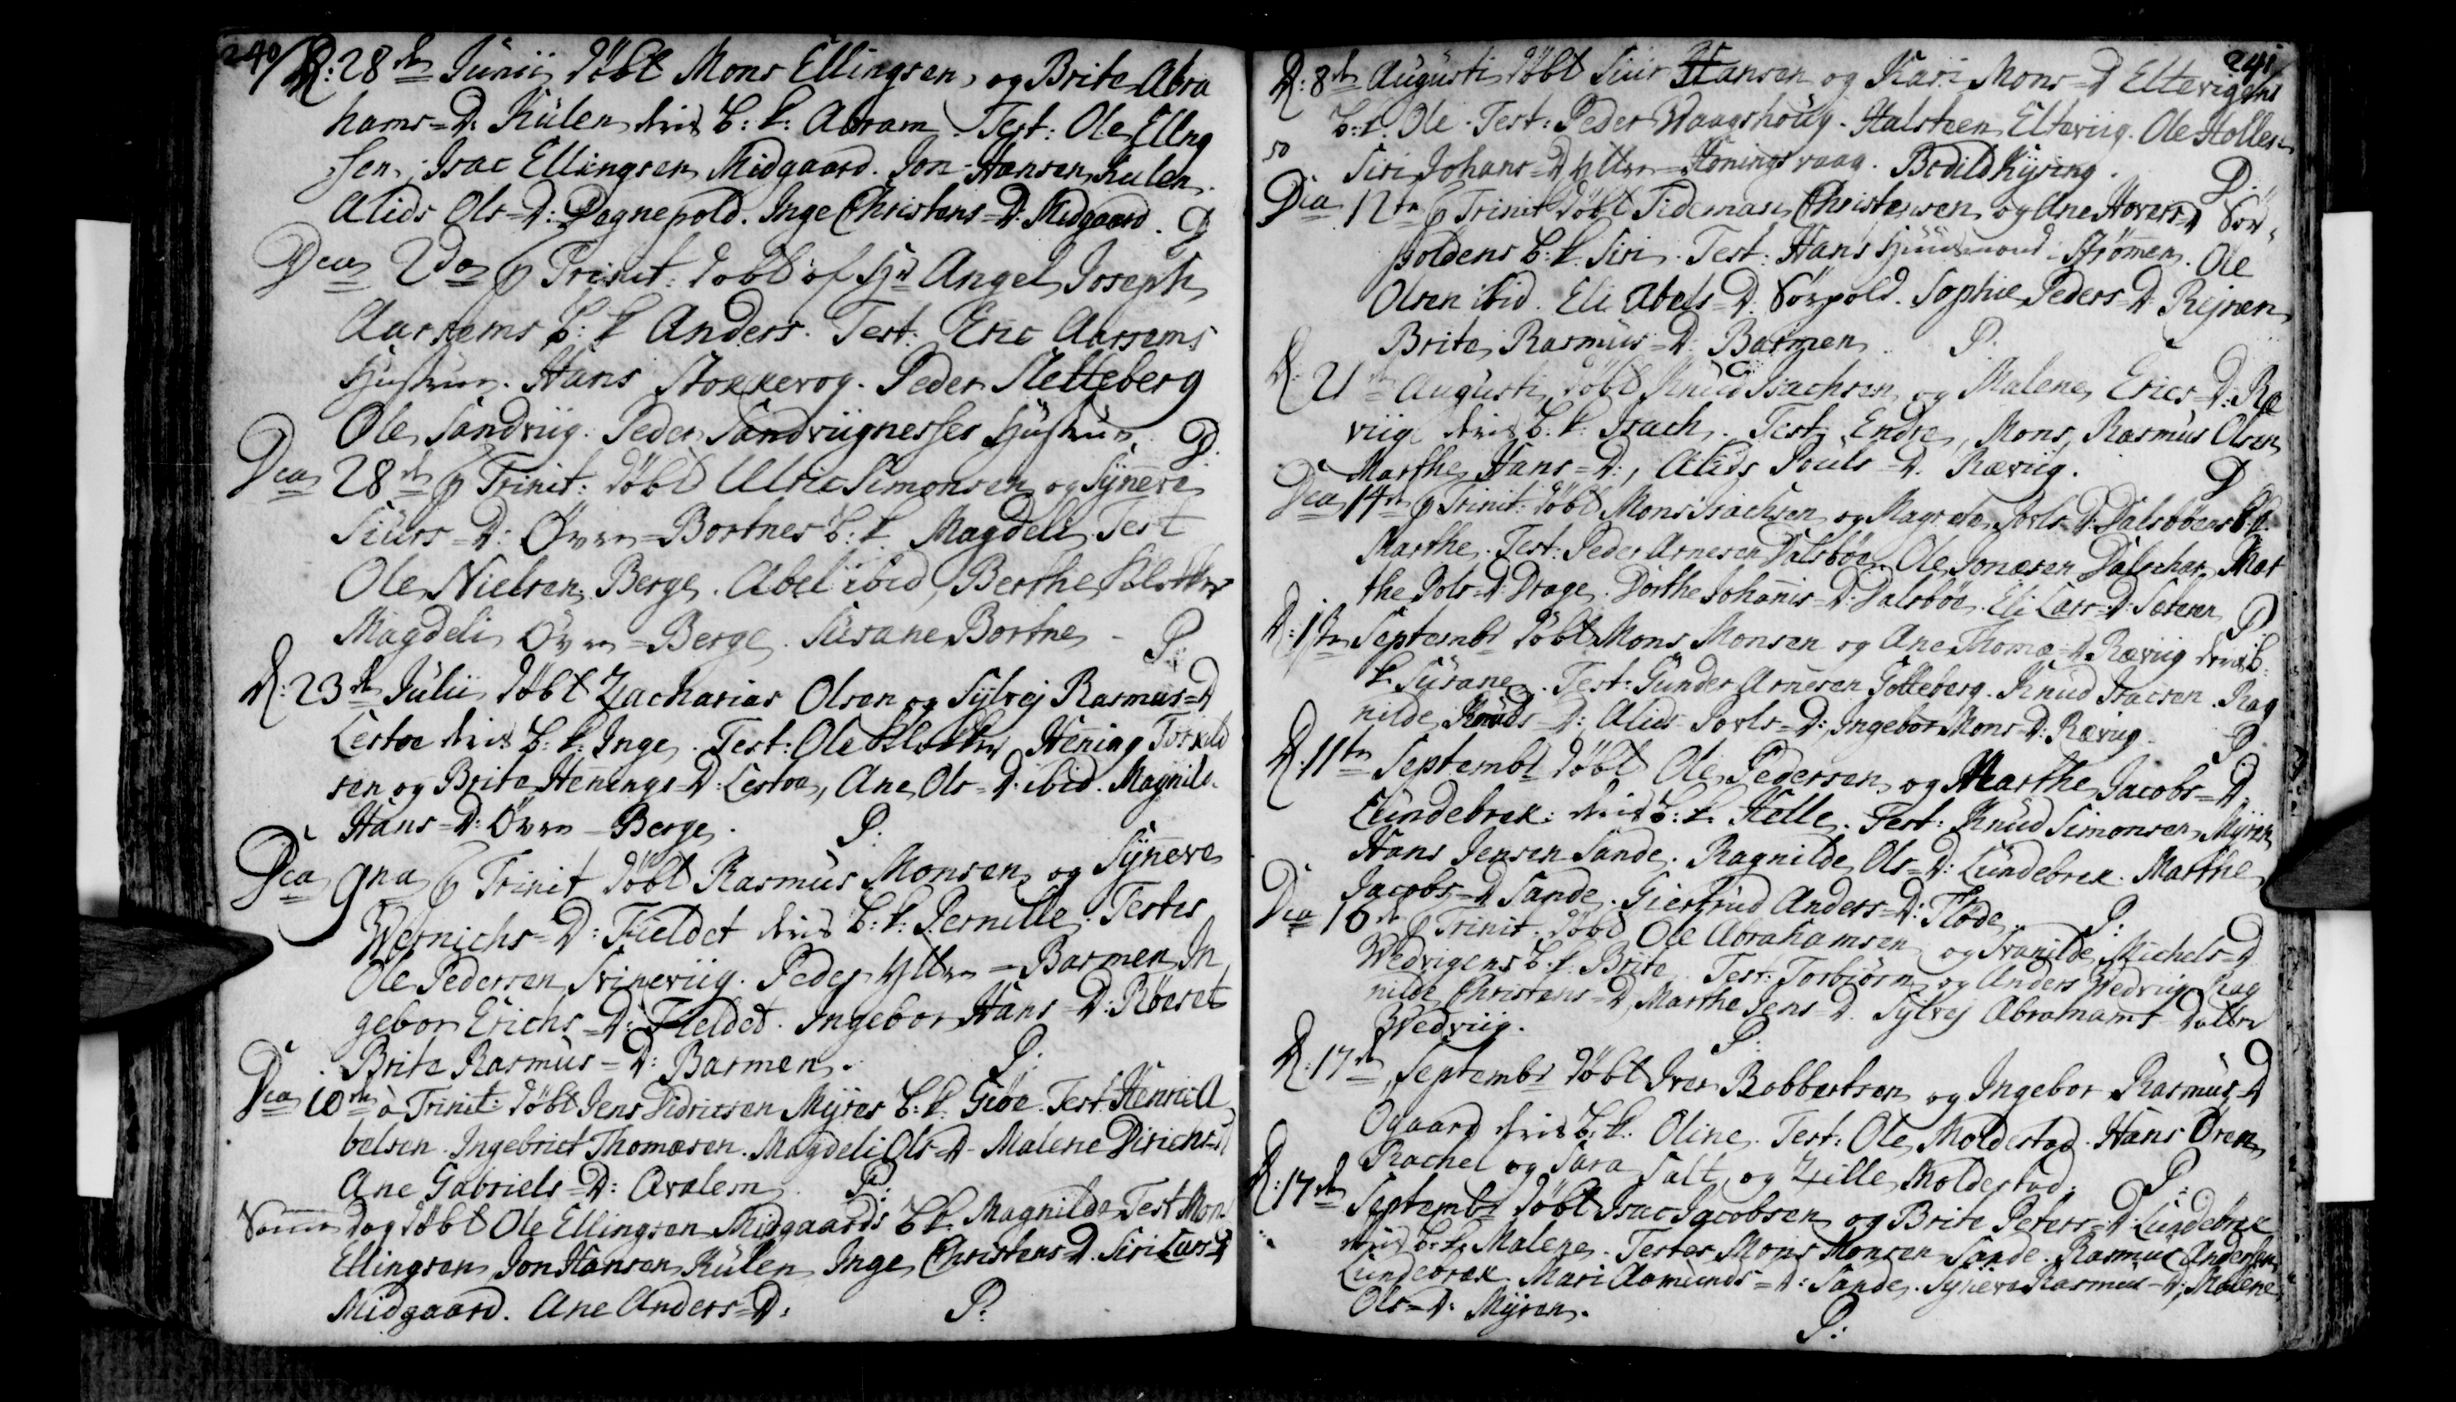 240
D: 28de Junii døbt Mons Ellingsen og Brite Abra
hams=D: Kulen deris B: k: Abram. Test: Ole Elling
sen, Isac Ellingsen Midgaard. Jon Hansen Kulen.
Alids Ols=D: Dognepold. Inge Christens=D: Midgaard. P
Dca 2da p Trinit: døbt af Hr Angel Joseph
Aarsems B: k Anders. Test: Eric Aarsems
Hustrue. Hans Stokkevog. Peder Sletteberg
Ole Sandviig. Peder Sandviignesses Hustrue. P.
Dca p Trinit: døbt Ulric Simonsen og Sÿneve
Siurs=D: Øvre=Bortnes B: k. Magdeli. Test
Ole Nielsen Berge. Abel ibid, Berthe Klokker
Magdeli Øvre=Berge. Susane Bortne - P.
D: 23de Julii døbt Zacharias Olsen og Sylvej Rasmus=D
Lestoe deris B: k: Inge. Test: Ole Klokker Hening Torkild
sen og Brite Henings=D: Lestoe, Ane Ols=D: ibid. Magnild
Hans=D: Øvre=Berge. P.
Dca 9na p Trinit døbt Rasmus Monsen og Sÿneve
Wernichs=D: Fieldet deris B: k: Pernille. Testes
Ole Pedersen Srineviig. Peder Ytre=Barmen In
gebor Erichs=D: Fieldet. Ingebor Hans=D: Røeset
Brite Rasmus=D: Barmen. P:
Dca 10de à Trinit: døbt Jens Didricsen Myres B: k. Giøe. Test. Henric A
belsen. Ingebrict Thomæsen. Magdeli Ols=D. Malene Dirichs=D
Ane Gabriels=D: Aralem. P:
Samme Dag døbt Ole Ellingsen Midgaards B k. Magnilde. Test Mons
Ellingsen, Jon Hansen Kulen Inge Christens=D. Siri Lars=D
Midgaard. Ane Anders=D: P:
241
D: 8de Augusti døbt Siur Hansen og Kari Mons=D Elteviigens
B: k. Ole. Test: Peder Waagshoug. Halsteen Elteviig. Ole Hollesen
50
Siri Johans=D Yttre=Honingsvaag. Bodild Kysing. P.
Dca 12te p Trinit døbt Tideman Christensen og Ane Hovers=D Sør
poldens B: k. Siri. Test: Hans Huusmand Strømen. Ole
Olsen ibid. Eli Abels=D: Sørpold. Sophie Peders=D: Rejnen
Brite Rasmus=D: Barmen. P.
D: 21de Augusti døbt Knud Isachsen og Malene Erics=D: Ræ
viig deris B: k: Isach. Test: Endre, Mons, Rasmus Olsen
Marthe Hans=D:, Alids Pouls=D. Ræviig. P
Dca 14de p Trinit: døbt Mons Isachsen og Magrete Povls=D: Dalsbøens B: k.
Marthe. Test: Peder Arnesen Dalsbøe. Ole Jonæsen Mar
the Pols=D: Drage. Dorthe Johanis=D: Dalsbøe. Eli Lars=D: Sæteren P
D: 1ste Septembr døbt Mons Monsen og Ane Thomæ=D Ræviig deris B:
k Susane. Test: Gunder Arnesen Gotteberg. Knud Isacsen. Rag
nilde Knuds=D: Alids Povls=D:, Ingebor Mons=D: Ræviig. P.
D: 11te Septembr døbt Ole Pedersen og Marthe Jacobs=D
Lundebrek: deris B: k. Helle. Test: Knud Simonsen Myren
Hans Jensen Sande. Ragnilde Ols=D: Lundebrek. Marthe
Jacobs=D Sande. Giertrud Anders=D: Fløde. P:
Dca 16de p Trinit: døbt Ole Abrahamsen og Svanilde Michels=D
Wedvigens B: k: Brite. Test: Torbiørn og Anders Wedviig Rag
nilde Christens=D, Marthe Jens=D. Sylvej Abrahams Datter
Wedviig. P:
D: 17de Septembr døbt Iver Bobbertsen og Ingebor Rasmus=D
Ogaard deris B: k. Oline. Test: Ole Moldestad. Hans Ören
Rachel og Sara Salt, og Zille Moldestad. P:
D: 17de Septembr døbt Isac Jacobsen og Brite Peters=D: Lundebrek
deris B: k. Malene. Testes Mons Monsen Sande. Rasmus Andersen
Lundebrek. Mari Aamunds=D: Sande. Syneve Rasmus=D: Malene
Ols=D: Myren. P: